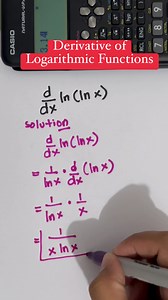 CASIO
Derivative of
Logarithmic Functions
d/dx ln(ln x)
solution
d/dx ln(ln x)
= 1/ln x · d/dx (ln x)
= 1/ln x · 1/x
= 1/(x ln x)